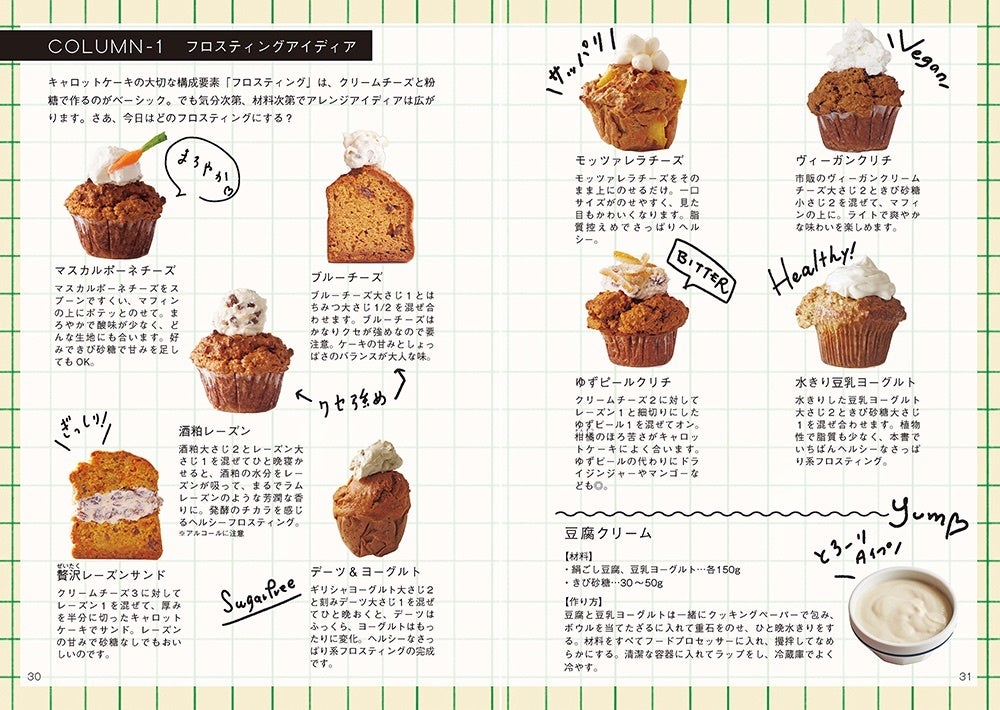 COLUMN-1 フロスティングアイディア
キャロットケーキの大切な構成要素「フロスティング」は、クリームチーズと粉
糖で作るのがベーシック。でも気分次第、材料次第でアレンジアイディアは広が
ります。さあ、今日はどのフロスティングにする？
まろやか
マスカルポーネチーズ
マスカルポーネチーズをス
プーンですくい、マフィン
の上にポテッとのせて。ま
ろやかで酸味が少なく、ど
んな生地にも合います。好
みできび砂糖で甘みを足し
てもOK。
ブルーチーズ
ブルーチーズ大さじ1とは
ちみつ大さじ1/2を混ぜ合
わせます。ブルーチーズは
かなりクセが強めなので要
注意。ケーキの甘みとしょっ
ぱさのバランスが大人な味。
クセ強め
酒粕レーズン
酒粕大さじ2とレーズン大
さじ1を混ぜてひと晩寝か
せると、酒粕の水分をレー
ズンが吸って、まるでラム
レーズンのような芳潤な香
りに。発酵のチカラを感じ
るヘルシーフロスティング。
※アルコールに注意
ぎっしり!
ぜいたく
贅沢レーズンサンド
クリームチーズ3に対して
レーズン1を混ぜて、厚み
を半分に切ったキャロット
ケーキでサンド。レーズン
の甘みで砂糖なしでもおい
しいのです。
Sugarfree
デーツ＆ヨーグルト
ギリシャヨーグルト大さじ2
と刻みデーツ大さじ1を混ぜ
てひと晩おくと、デーツは
ふっくら、ヨーグルトはもっ
たりに変化。ヘルシーなさっ
ぱり系フロスティングの完成
です。
30
サッパリ!
モッツァレラチーズ
モッツァレラチーズをその
まま上にのせるだけ。一口
サイズがのせやすく、見た
目もかわいくなります。脂
質控えめでさっぱりヘル
シー。
Vegan
ヴィーガンクリチ
市販のヴィーガンクリーム
チーズ大さじ2ときび砂糖
小さじ2を混ぜて、マフィ
ンの上に。ライトで爽やか
な味わいを楽しめます。
BITTER
ゆずピールクリチ
クリームチーズ2に対して
レーズン1と細切りにした
ゆずピール1を混ぜてオン。
柑橘のほろ苦さがキャロッ
トケーキによく合います。
ゆずピールの代わりにドラ
イジンジャーやマンゴーな
ども◎。
Healthy!
水きり豆乳ヨーグルト
水きりした豆乳ヨーグルト
大さじ2ときび砂糖大さじ
1を混ぜ合わせます。植物
性で脂質も少なく、本書で
いちばんヘルシーなさっぱ
り系フロスティング。
Yum
豆腐クリーム
【材料】
・絹ごし豆腐、豆乳ヨーグルト…各150g
・きび砂糖…30〜50g
【作り方】
豆腐と豆乳ヨーグルトは一緒にクッキングペーパーで包み、
ボウルを当てたざるに入れて重石をのせ、ひと晩水きりをす
る。材料をすべてフードプロセッサーに入れ、攪拌してなめ
らかにする。清潔な容器に入れてラップをし、冷蔵庫でよく
冷やす。
とろーり
31